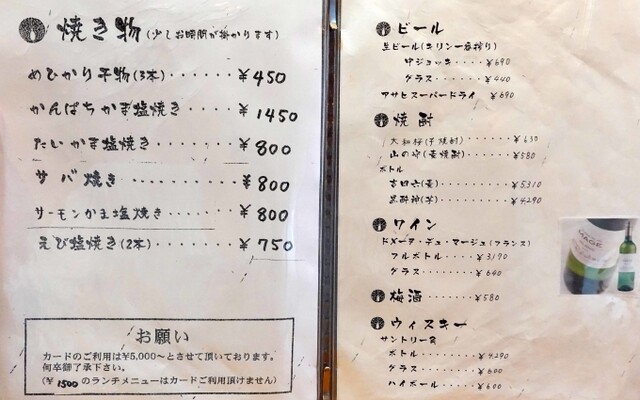 焼き物(少しお時間が掛かります)
めひかり干物(3本)・・・・・・・¥450
かんぱちかま塩焼き・・・・・¥1450
たいかま塩焼き・・・・・・・¥800
サバ焼き・・・・・・・・・・¥800
サーモンかま塩焼き・・・・・¥800
えび塩焼き(2本)・・・・・・¥750
お願い
カードのご利用は¥5,000~とさせて頂いております。
何卒御了承下さい。
(¥1500のランチメニューはカードご利用頂けません)
ビール
生ビール(キリン一番搾り)
中ジョッキ・・・・¥690
グラス・・・・・・¥440
アサヒスーパードライ ¥690
焼酎
大和桜(芋焼酎)・・・・・・・¥630
山の守(麦焼酎)・・・・・・・¥580
ボトル
吉四六(麦)・・・・・・・・¥5310
黒霧神(芋)・・・・・・・・¥4290
ワイン
ドメーヌ・デュ・マージュ(フランス)
フルボトル・・・・¥3170
グラス・・・・・・・¥640
梅酒・・・・・・・¥580
ウィスキー
サントリー角
ボトル・・・・・・・¥4290
グラス・・・・・・・¥600
ハイボール・・・・・¥600